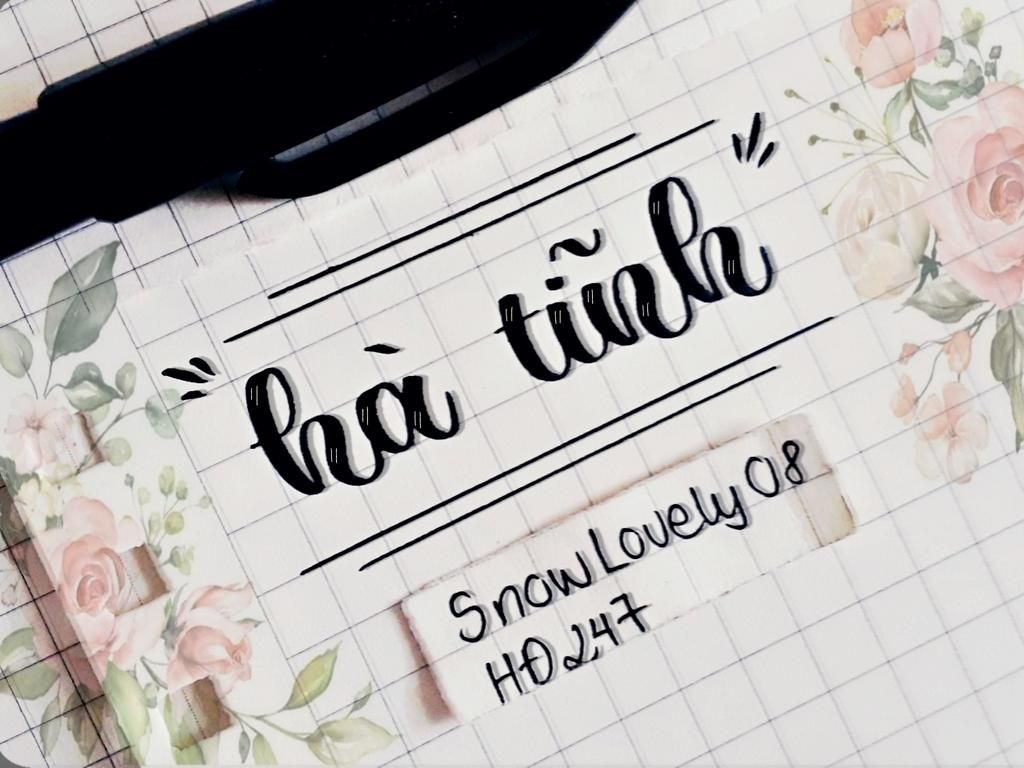 "hà tĩnh"
SnowLovely08
HĐ247